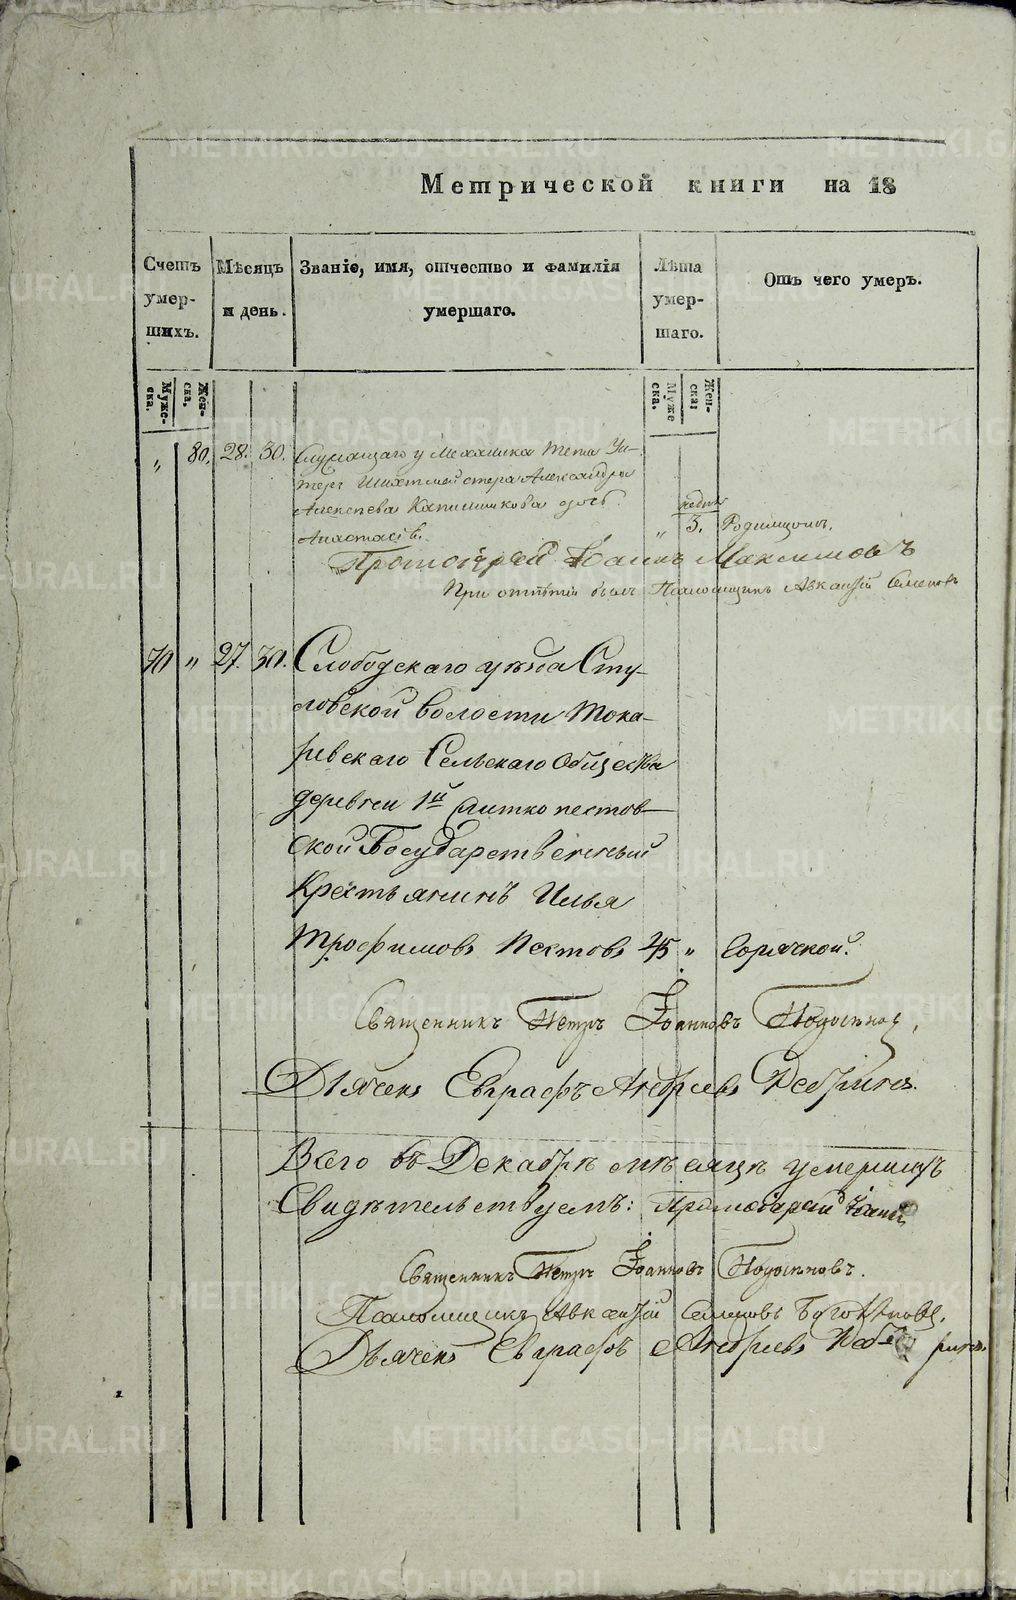 Метрической книги на 18
Счетъ умер- шихъ.
Мѣсяцъ и день.
Званіе, имя, отчество и фамилія умершаго.
Лѣта умер- шаго.
Отъ чего умеръ.
Муже- ска.
Жен- ска.
Муже ска.
Жен- ска;
„ 80. 28. 30. Служащаго у Механика Тета Ун-
теръ Шихтмейстера Александра
Алексѣева дочь
Анастасія.
недѣль
„ 3. Родимцомъ.
Протоіерей Іоаннъ Максимовъ
При отпѣтіи былъ Псаломщикъ Авкантій Семеновъ
70 „ 27. 30. Слободскаго уѣзда Сту-
ловской волости Тока-
ревскаго Сельскаго Общества
деревни 1й пестов-
ской Государственный
Крестьянинъ Илья
Трофимовъ Пестовъ 45 „ Горячкой.
Священникъ Петръ Іоанновъ
Дьячекъ Евграфъ Андреевъ Ребринъ.
Всего въ Декабрѣ мѣсяцѣ умершихъ
Свидѣтельствуемъ: Протоіерей Іоаннъ
Священникъ Петръ Іоанновъ
Псаломщикъ Авкантій Семеновъ
Дьячекъ Евграфъ Андреевъ
METRIKI.GASO-URAL.RU